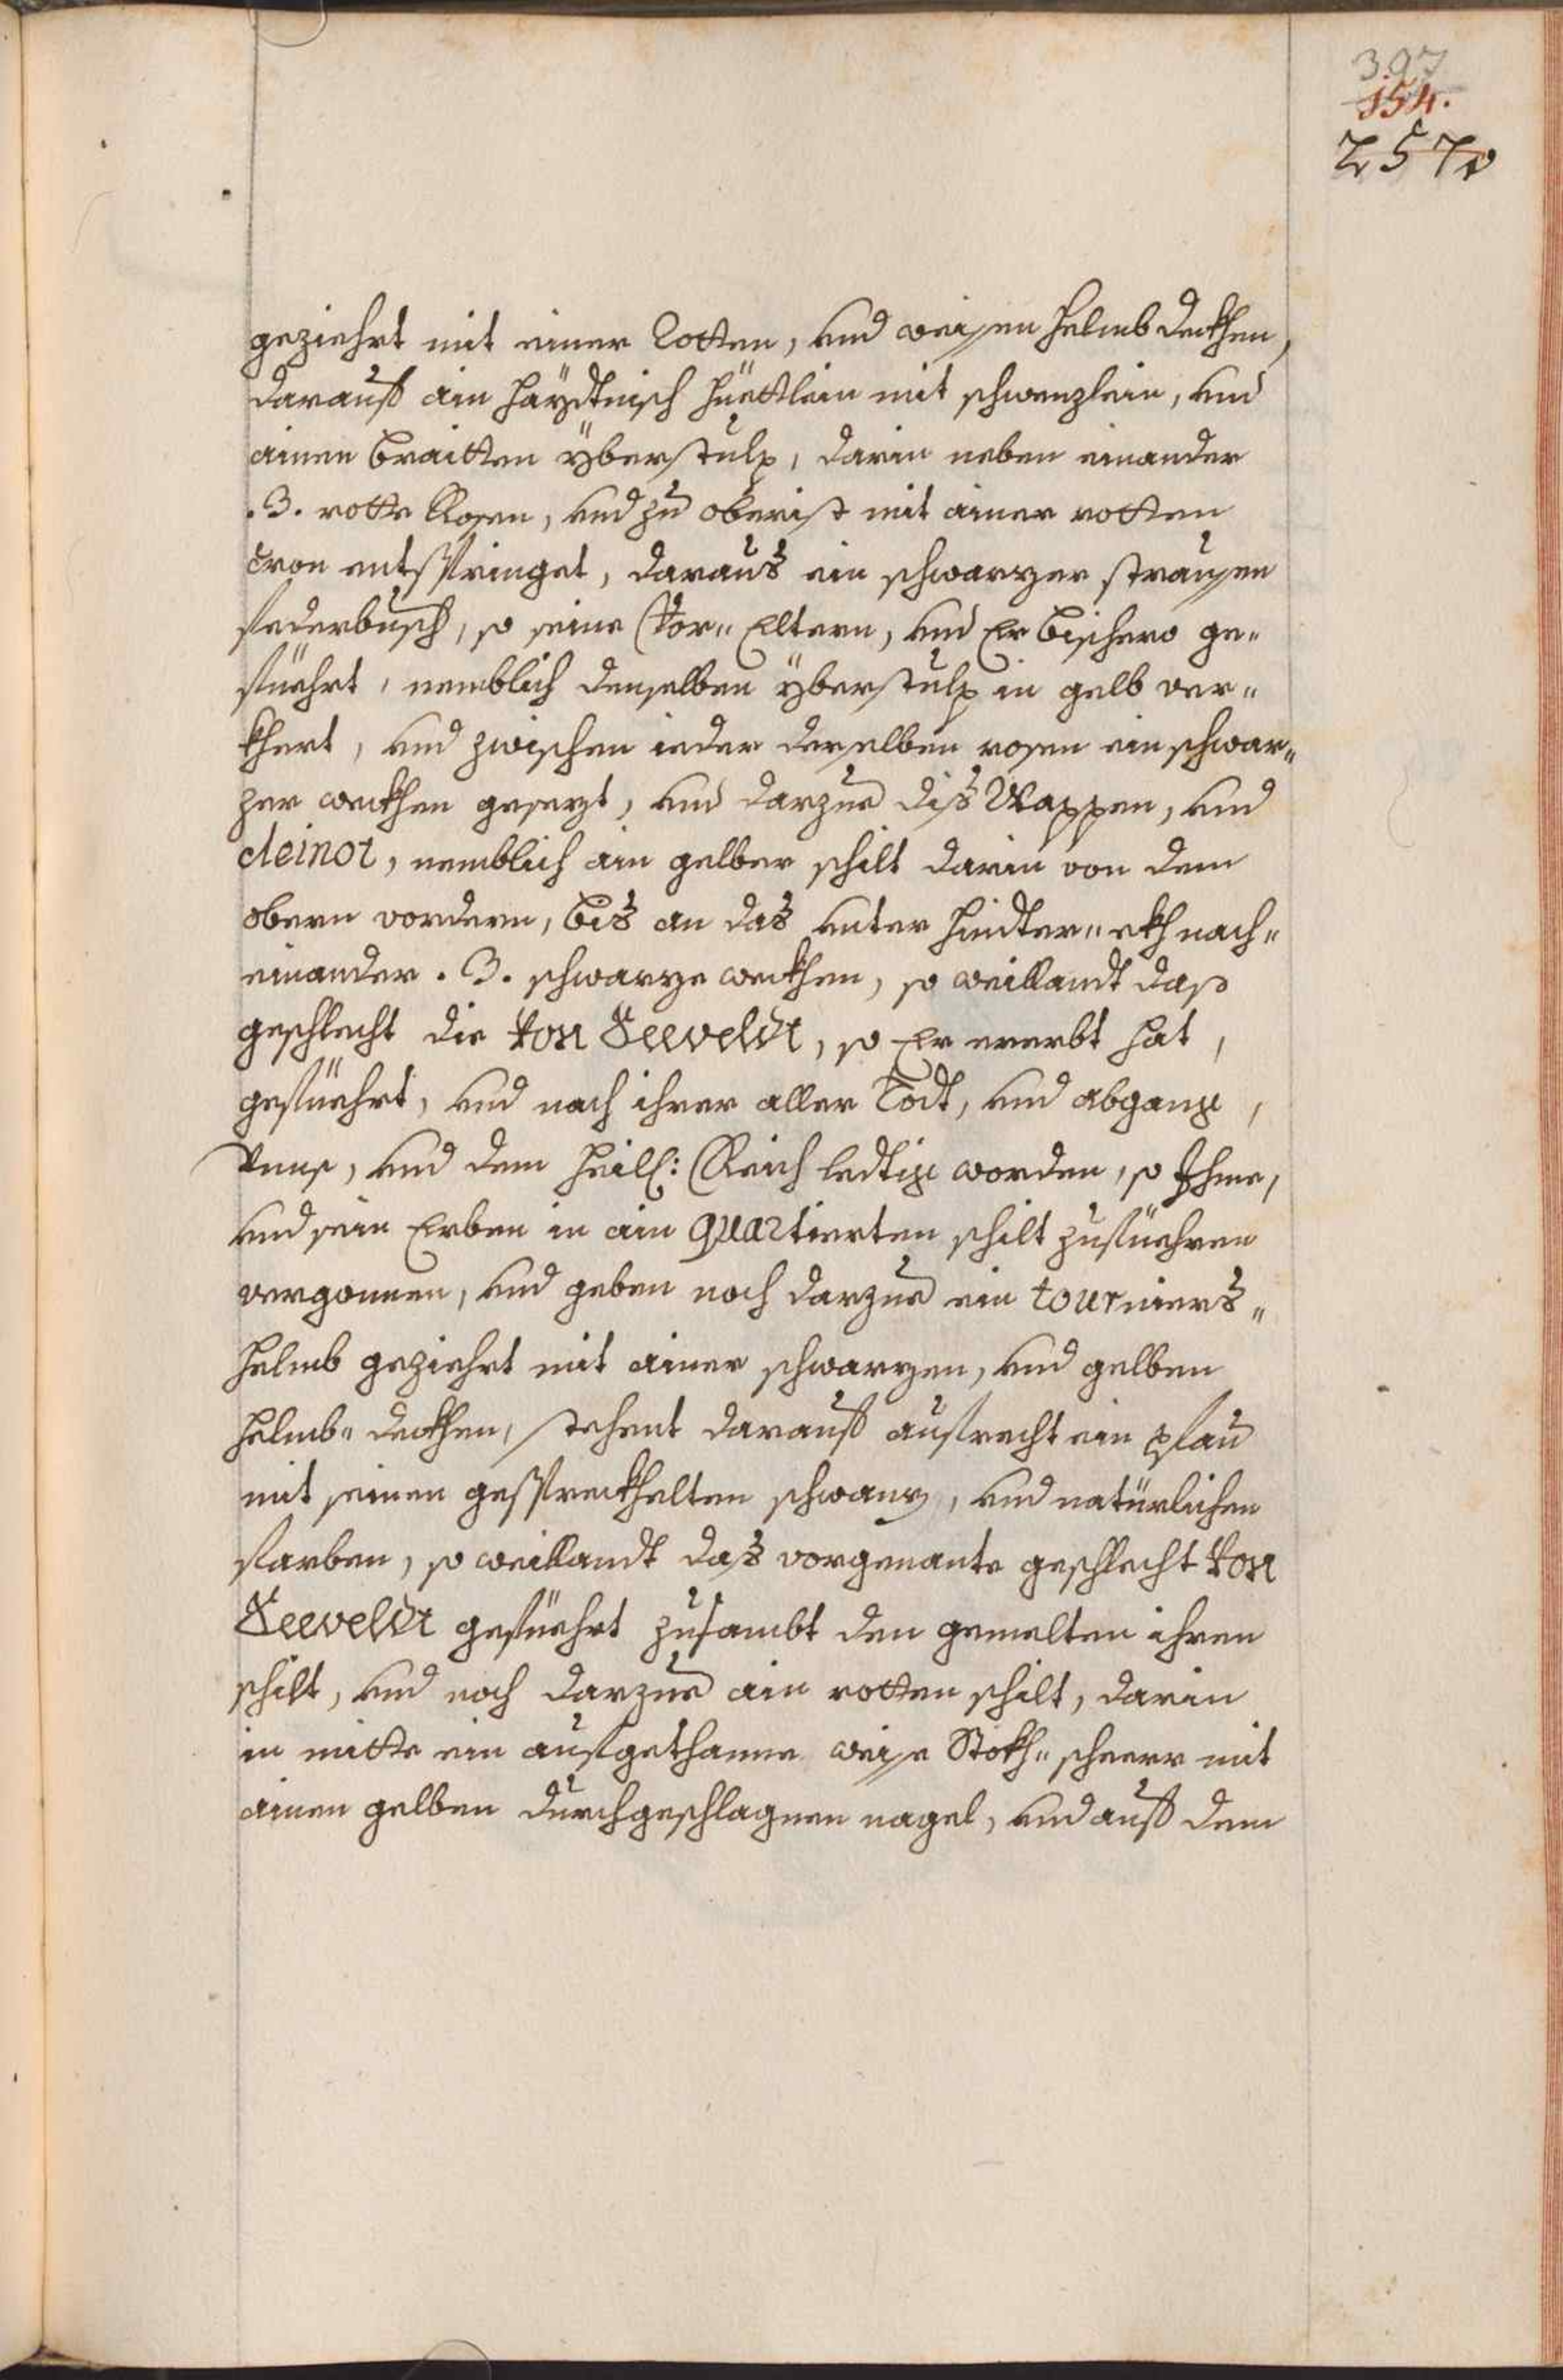 397
154.
257v
geziehrt mit einer Rotten, und weissen helmb deckhen,
darauff ain haÿdtnisch hüettlein mit schwenzlein, und
ainen braitten ÿberstulp, darin neben einander
.3. rotte Rosen, und zu oberist mit ainer rotten
Cron entspringet, daraus ein schwarzer straussen
federbusch, so seine Vor„ Eltern, und Er bishero ge„
füehrt, nemblich denselben ÿberstulp in gelb ver„
khert, und zwischen ieder derselben rosen ein schwar„
zer weckhen gesezt, und darzue diß Wappen, und
cleinot, nemblich ain gelber schilt darin von dem
obern vordern, bis an das unter hindter„ ekh nach„
einander .3. schwarze weckhen, so weillandt daß
geschlecht die Von Seeveldt, so Er ererbt hat,
gefüehrt, und nach ihrer aller Todt, und abgang,
Unns, und dem heill: Reich ledtig worden, so Ihme,
und sein Erben in ain quartierten schilt zufüehren
vergonnen, und geben noch darzue ein tourniers„
helmb geziehrt mit ainer schwarzen, und gelben
helmb„ deckhen, stehent darauff aufrecht ein pfau
mit seinen gesspreckhelten schwanz, und natürlichen
farben, so weillandt das vorgenante geschlecht Von
Seeveldt gefüehrt zusambt den gemelten ihren
schilt, und noch darzue ain rotten schilt, darin
in mitte ein aufgethanne weisse Stokh„ scheerr mit
ainen gelben durchgeschlagnen nagel, und auff dem